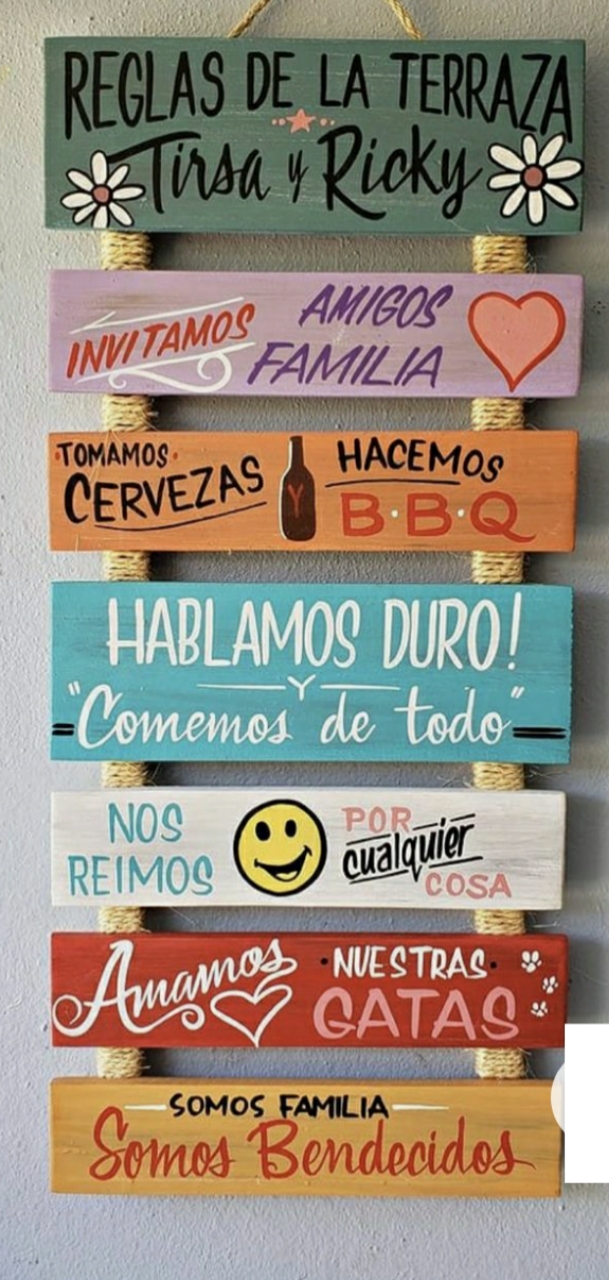 REGLAS DE LA TERRAZA
Tirsa y Ricky
INVITAMOS
AMIGOS
FAMILIA
TOMAMOS
CERVEZAS
Y
HACEMOS
B·B·Q
HABLAMOS DURO!
Y
"Comemos de todo"
NOS
REIMOS
POR
cualquier
COSA
Amamos
·NUESTRAS·
GATAS
SOMOS FAMILIA
Somos Bendecidos